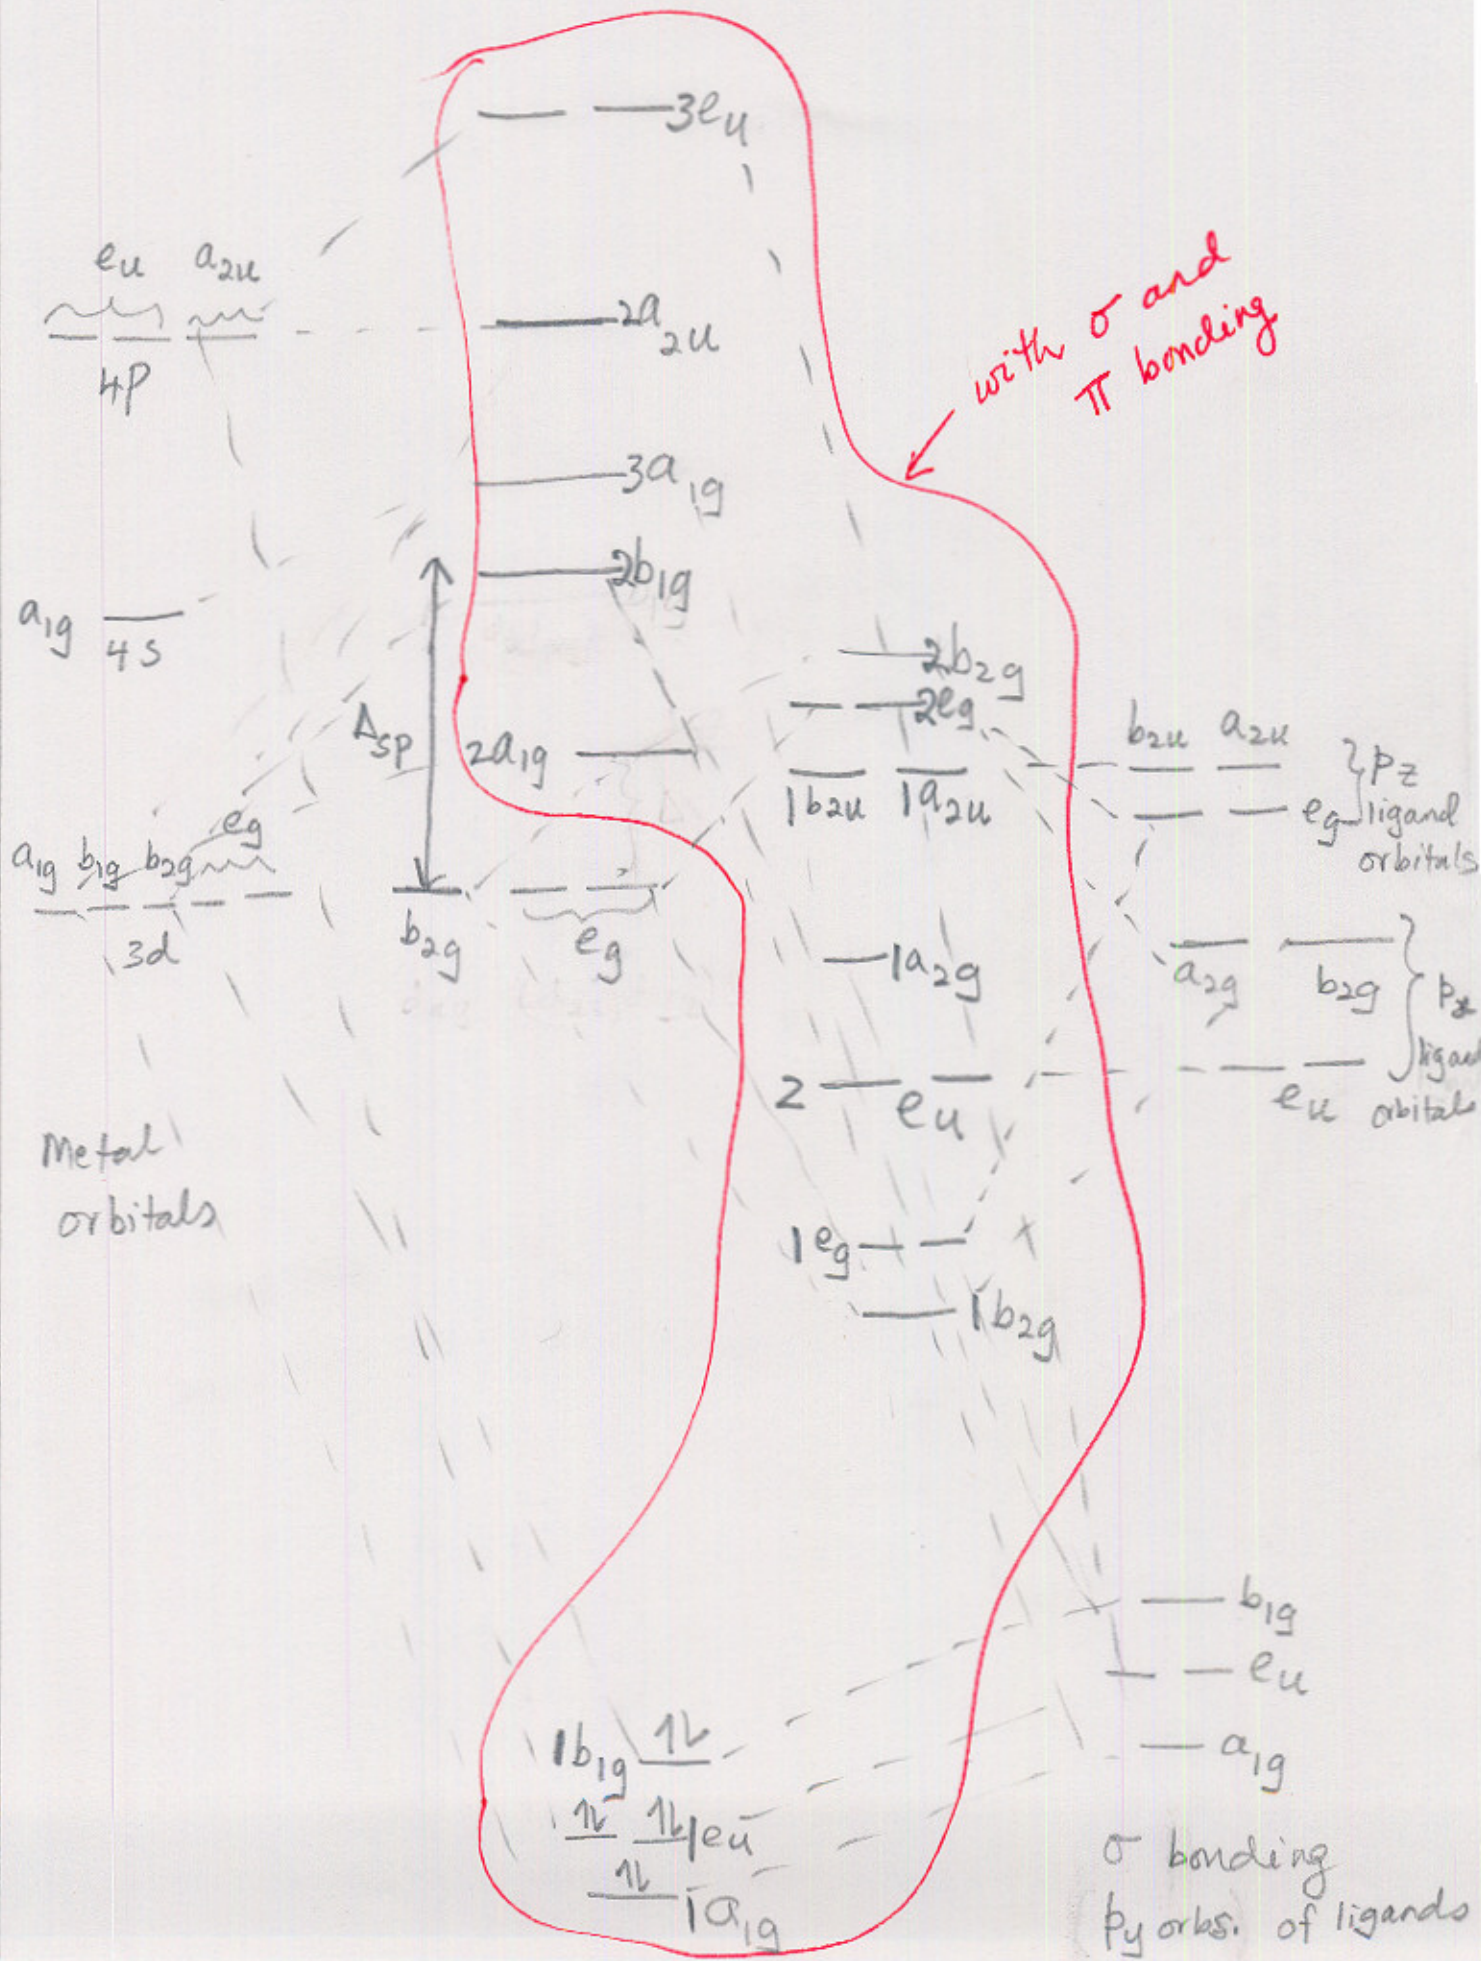 3eu
eu a2u
4p
2a2u
with σ and
π bonding
3a1g
2b1g
a1g
4s
2b2g
2eg
Δsp
2a1g
1b2u 1a2u
b2u a2u
pz
eg ligand
orbitals
eg
a1g b1g b2g
3d
b2g
eg
1a2g
a2g b2g
ligand
orbitals
2 eu
eu
Metal
orbitals
1eg
1b2g
b1g
eu
a1g
1b1g
1eu
1a1g
σ bonding
py orbs. of ligands